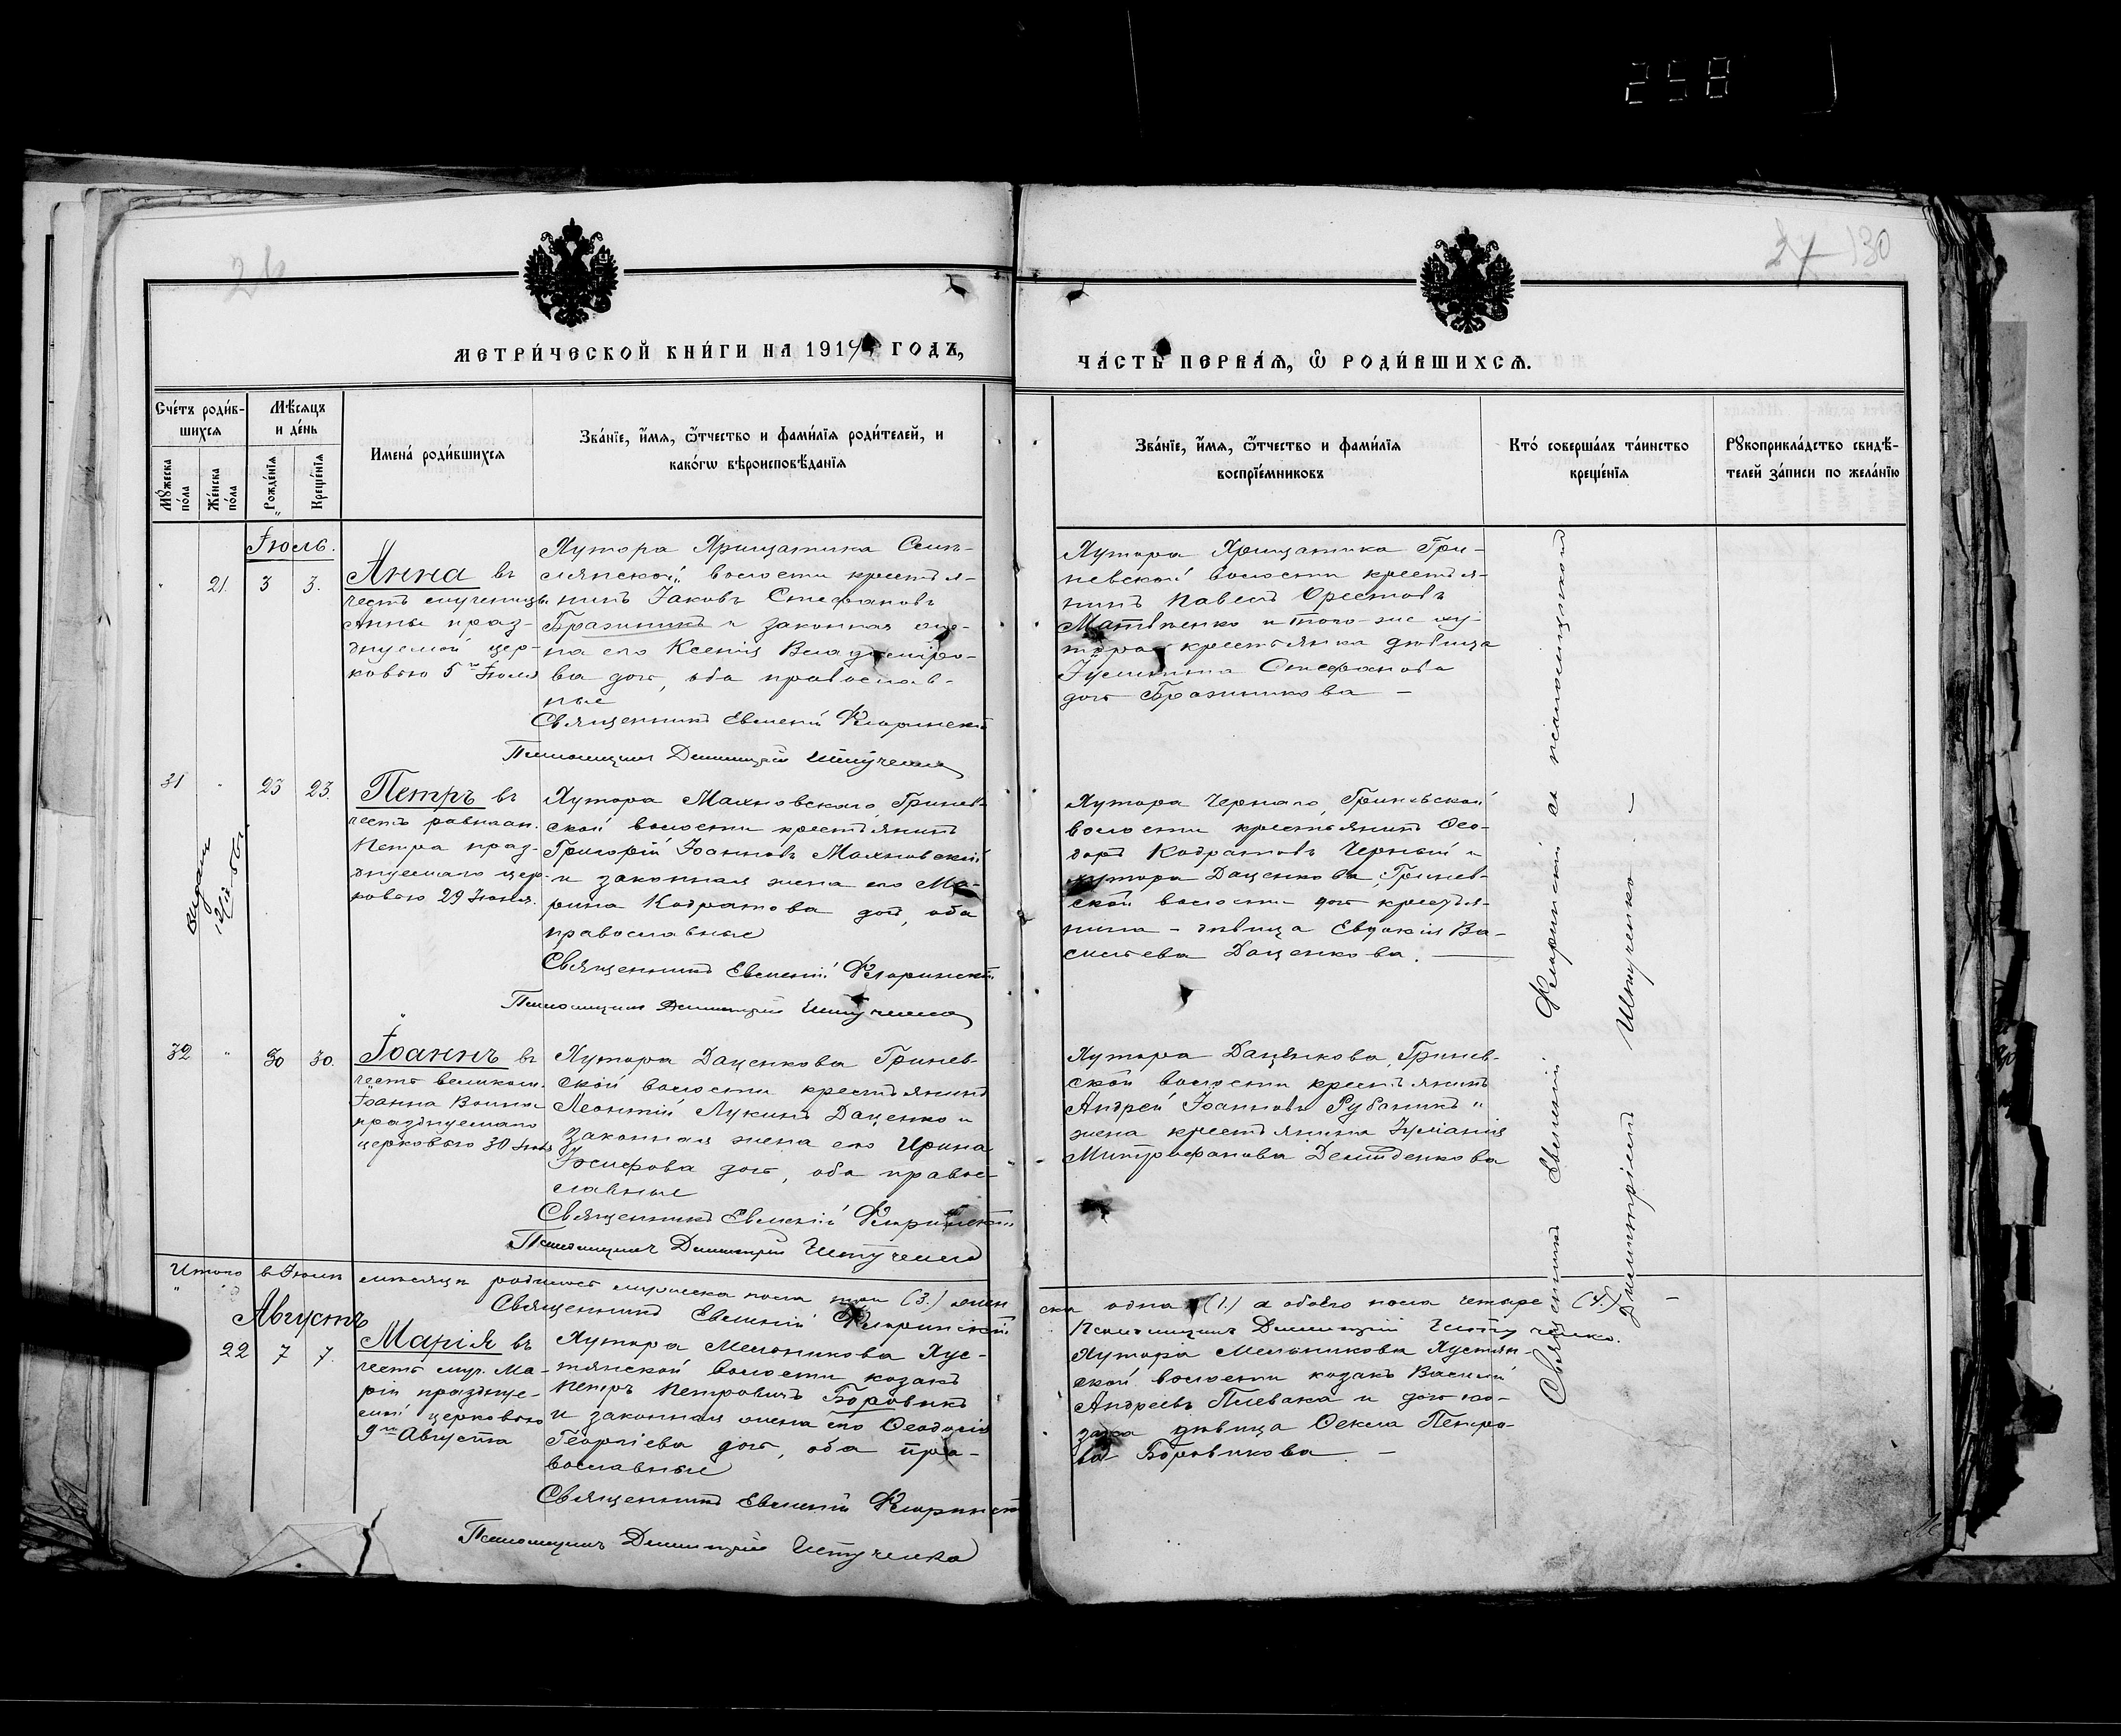 258
26
27 130
МЕТРИ́ЧЕСКОЙ КНИ́ГИ НА 1914 ГОДЪ,
ЧА́СТЬ ПЕРВАѦ, Ѡ РОДИ́ВШИХСѦ.
Сче́тъ роди́в-
шихсѧ
Мѣ́сѧцъ
и де́нь
Имена́ роди́вшихсѧ
Зва́нїе, и́мѧ, ѻ́тчество и фами́лїѧ роди́телей, и
како́гѡ вѣроисповѣ́данїѧ
Мꙋ́жеска
по́ла
Же́нска
по́ла
Рожде́нїѧ
Креще́нїѧ
Зва́нїе, и́мѧ, ѻ́тчество и фами́лїѧ
воспрїе́мниковъ
Кто́ соверша́лъ та́инство
креще́нїѧ
Рꙋкоприкла́дство свидѣ́-
телей за́писи по жела́нїю
Іюль.
21. 3 3.
Анна въ
честь мученицы
Анны праз-
днуемой цер-
ковью 5го Іюля
Хутора Хрищатика
волости крестья-
нинъ Іаковъ Стефановъ
Бражникъ и законная же-
на его Ксенія Владиміро-
ва доч, оба православ-
ные
Священникъ Евменій Флоринскій
Псаломщикъ Димитрій Штученко
Хутора Хрищатика Гри-
невской волости крестья-
нинъ Павелъ Орестовъ
Матвѣенко и того-же ху-
тора крестьянка дѣвица
Іулиттина Стефанова
доч Бражникова —
31 23 23.
Выдана
Петръ въ
честь равноап.
Петра праз-
днуемаго цер-
ковью 29 Іюня.
Хутора Махновскаго, Гринев-
ской волости крестьянинъ
Григорій Іоанновъ Махновскій
и законная жена его Ма-
рина Кодратова доч, оба
православные
Священникъ Евменій Флоринскій
Псаломщикъ Димитрій Штученко
Хутора Чернаго, Гриневской
волости крестьянинъ Ѳео-
доръ Кодратовъ Черный и
хутора Даценкова, Гринев-
ской волости доч крестья-
нина - дѣвица Евдокія Ва-
сильева Даценкова. —
32 30 30.
Іоаннъ въ
честь великом.
Іоанна Воина
празднуемаго
церковью 30 Іюля
Хутора Даценкова Гринев-
ской волости крестьянинъ
Леонтій Лукинъ Даценко и
законная жена его Ирина
Іосифова доч, оба право-
славные
Священникъ Евменій Флоринскій
Псаломщикъ Димитрій Штученко
Хутора Даценкова, Гринев-
ской волости крестьянинъ
Андрей Іоанновъ Рубаникъ и
жена крестьянина Іуліанія
Митрофанова Демиденкова
Священникъ Евменій Флоринскій съ псаломщикомъ
Димитріемъ Штученко. —
Итого въ Іюлѣ мѣсяцѣ родилось мужеска пола три (3.) жен
ска одна (1.) а обоего пола четыре (4.) —
Священникъ Евменій Флоринскій
Псаломщикъ Димитрій Штученко.
Августъ
22 7 7.
Марія въ
честь мур. Ма-
ріи празднуе-
мой церковью
9го Августа
Хутора Мельникова Хус-
тянской волости козакъ
Петръ Петровичъ Боровикъ
и законная жена его Ѳеодосія
Георгіева доч, оба пра-
вославные
Священникъ Евменій Флоринскій
Псаломщикъ Димитрій Штученко
Хутора Мельникова Хустян-
ской волости козакъ Василій
Андреевъ Плевака и доч ко-
зака дѣвица Ѳекла Петро-
ва Боровикова. —